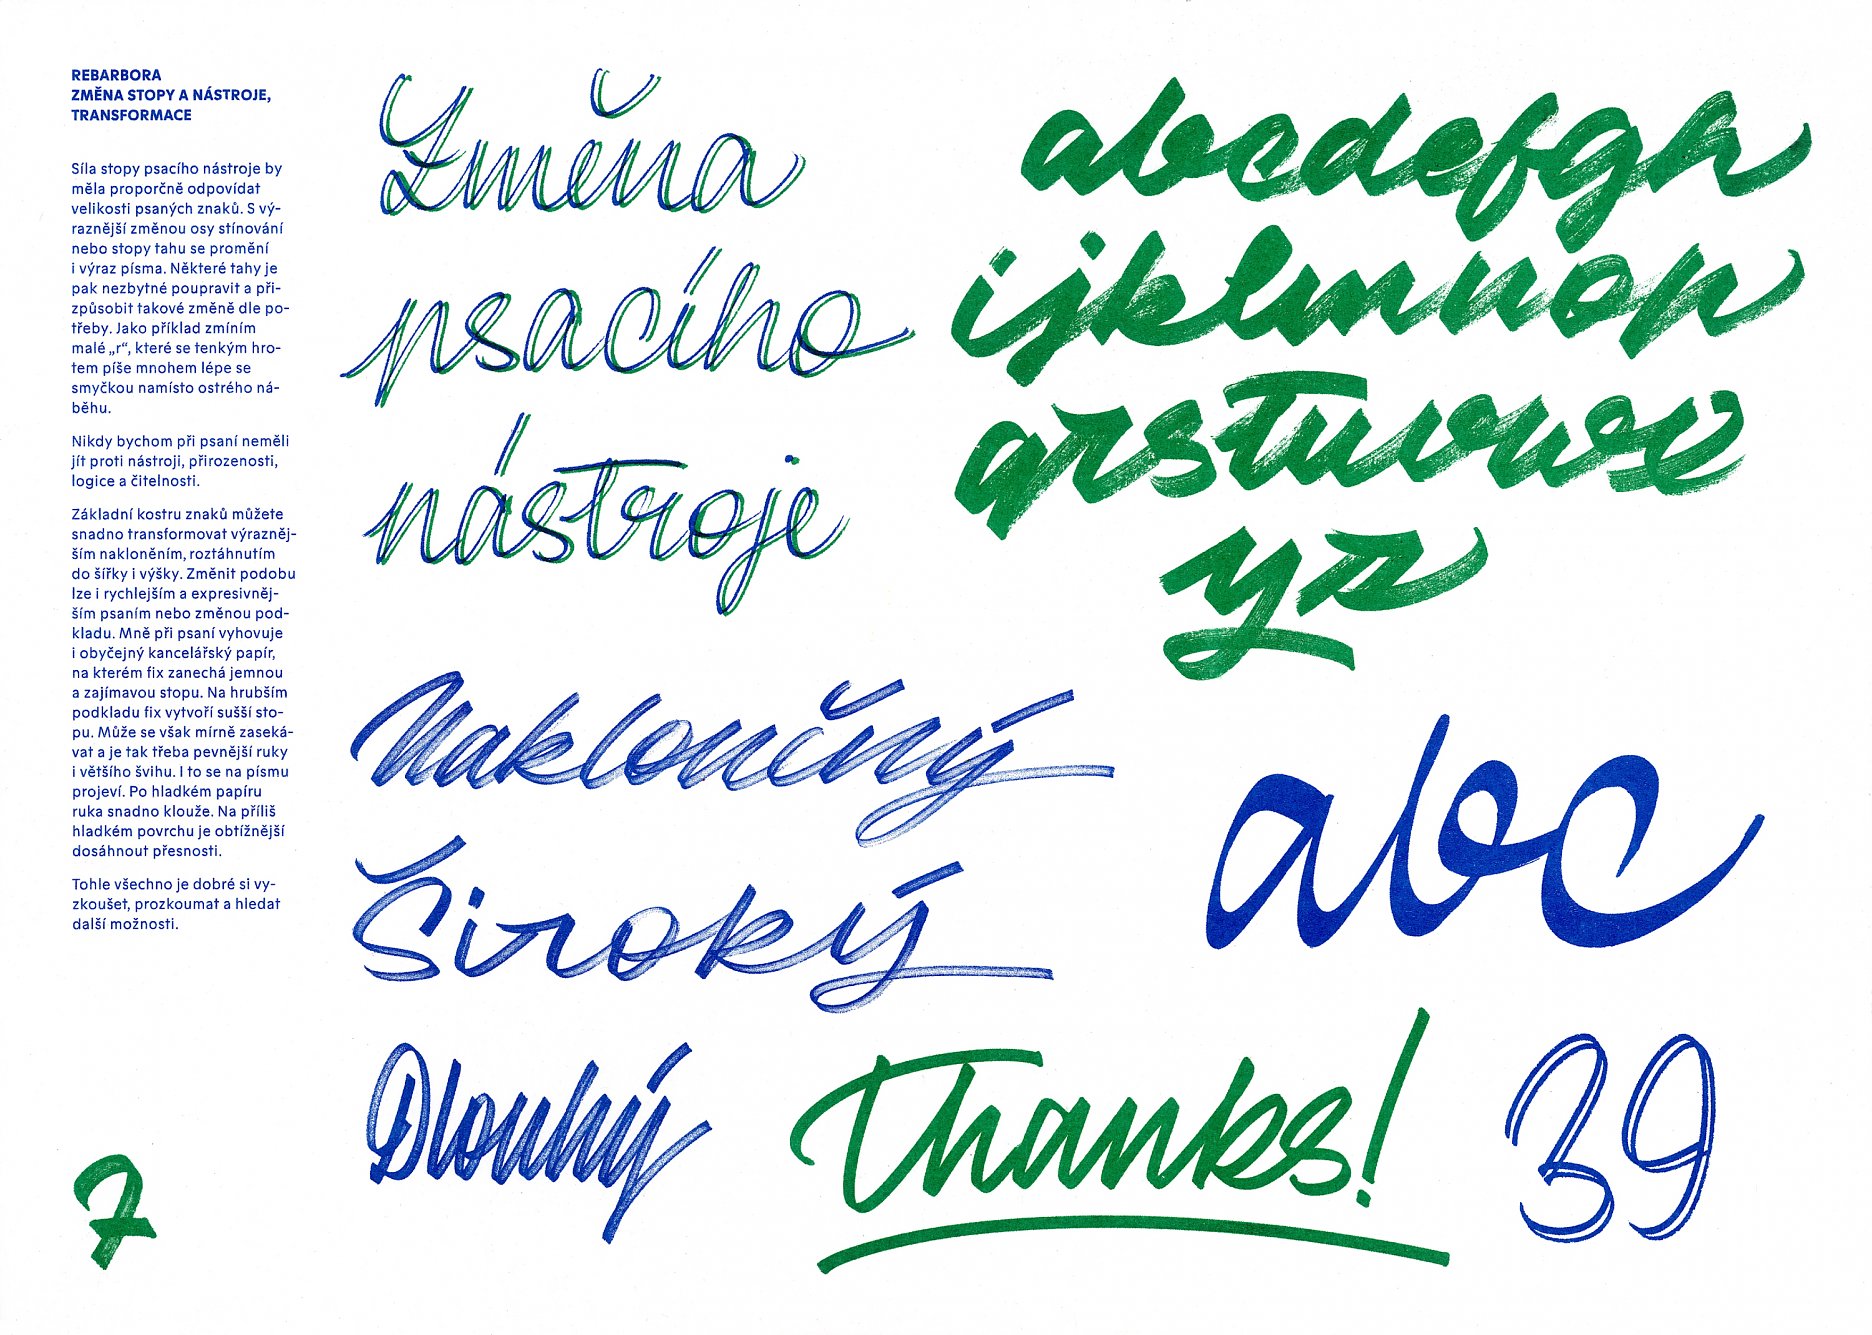 REBARBORA
ZMĚNA STOPY A NÁSTROJE,
TRANSFORMACE
Síla stopy psacího nástroje by
měla proporčně odpovídat
velikosti psaných znaků. S vý-
raznější změnou osy stínování
nebo stopy tahu se promění
i výraz písma. Některé tahy je
pak nezbytné poupravit a při-
způsobit takové změně dle po-
třeby. Jako příklad zmíním
malé „r“, které se tenkým hro-
tem píše mnohem lépe se
smyčkou namísto ostrého ná-
běhu.
Nikdy bychom při psaní neměli
jít proti nástroji, přirozenosti,
logice a čitelnosti.
Základní kostru znaků můžete
snadno transformovat výrazněj-
ším nakloněním, roztáhnutím
do šířky i výšky. Změnit podobu
lze i rychlejším a expresivněj-
ším psaním nebo změnou pod-
kladu. Mně při psaní vyhovuje
i obyčejný kancelářský papír,
na kterém fix zanechá jemnou
a zajímavou stopu. Na hrubším
podkladu fix vytvoří sušší sto-
pu. Může se však mírně zaseká-
vat a je tak třeba pevnější ruky
i většího švihu. I to se na písmu
projeví. Po hladkém papíru
ruka snadno klouže. Na příliš
hladkém povrchu je obtížnější
dosáhnout přesnosti.
Tohle všechno je dobré si vy-
zkoušet, prozkoumat a hledat
další možnosti.
7
Změna
psacího
nástroje
abcdefgh
ijklmnop
qrstuvwx
yz
Nakloněný
Široký
Dlouhý
abc
Thanks!
39